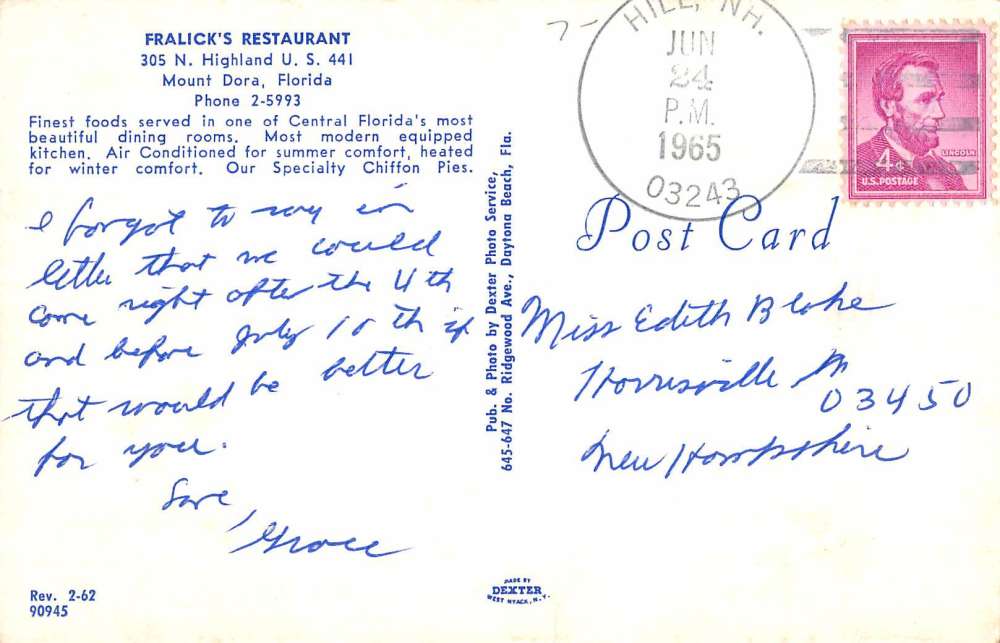 FRALICK'S RESTAURANT
305 N. Highland U. S. 441
Mount Dora, Florida
Phone 2-5993
Finest foods served in one of Central Florida's most
beautiful dining rooms. Most modern equipped
kitchen. Air Conditioned for summer comfort, heated
for winter comfort. Our Specialty Chiffon Pies.
I forgot to say in
letter that we could
come right after the 4th
and before July 10th if
that would be better
for you.
Love,
Grace
Rev. 2-62
90945
Pub. & Photo by Dexter Photo Service,
645-647 No. Ridgewood Ave., Daytona Beach, Fla.
MADE BY
DEXTER
WEST NYACK, N.Y.
HILL, NH.
JUN
24
P.M.
1965
03243
4¢
LINCOLN
U.S. POSTAGE
Post Card
Miss Edith Blake
Harrisville
03450
New Hampshire